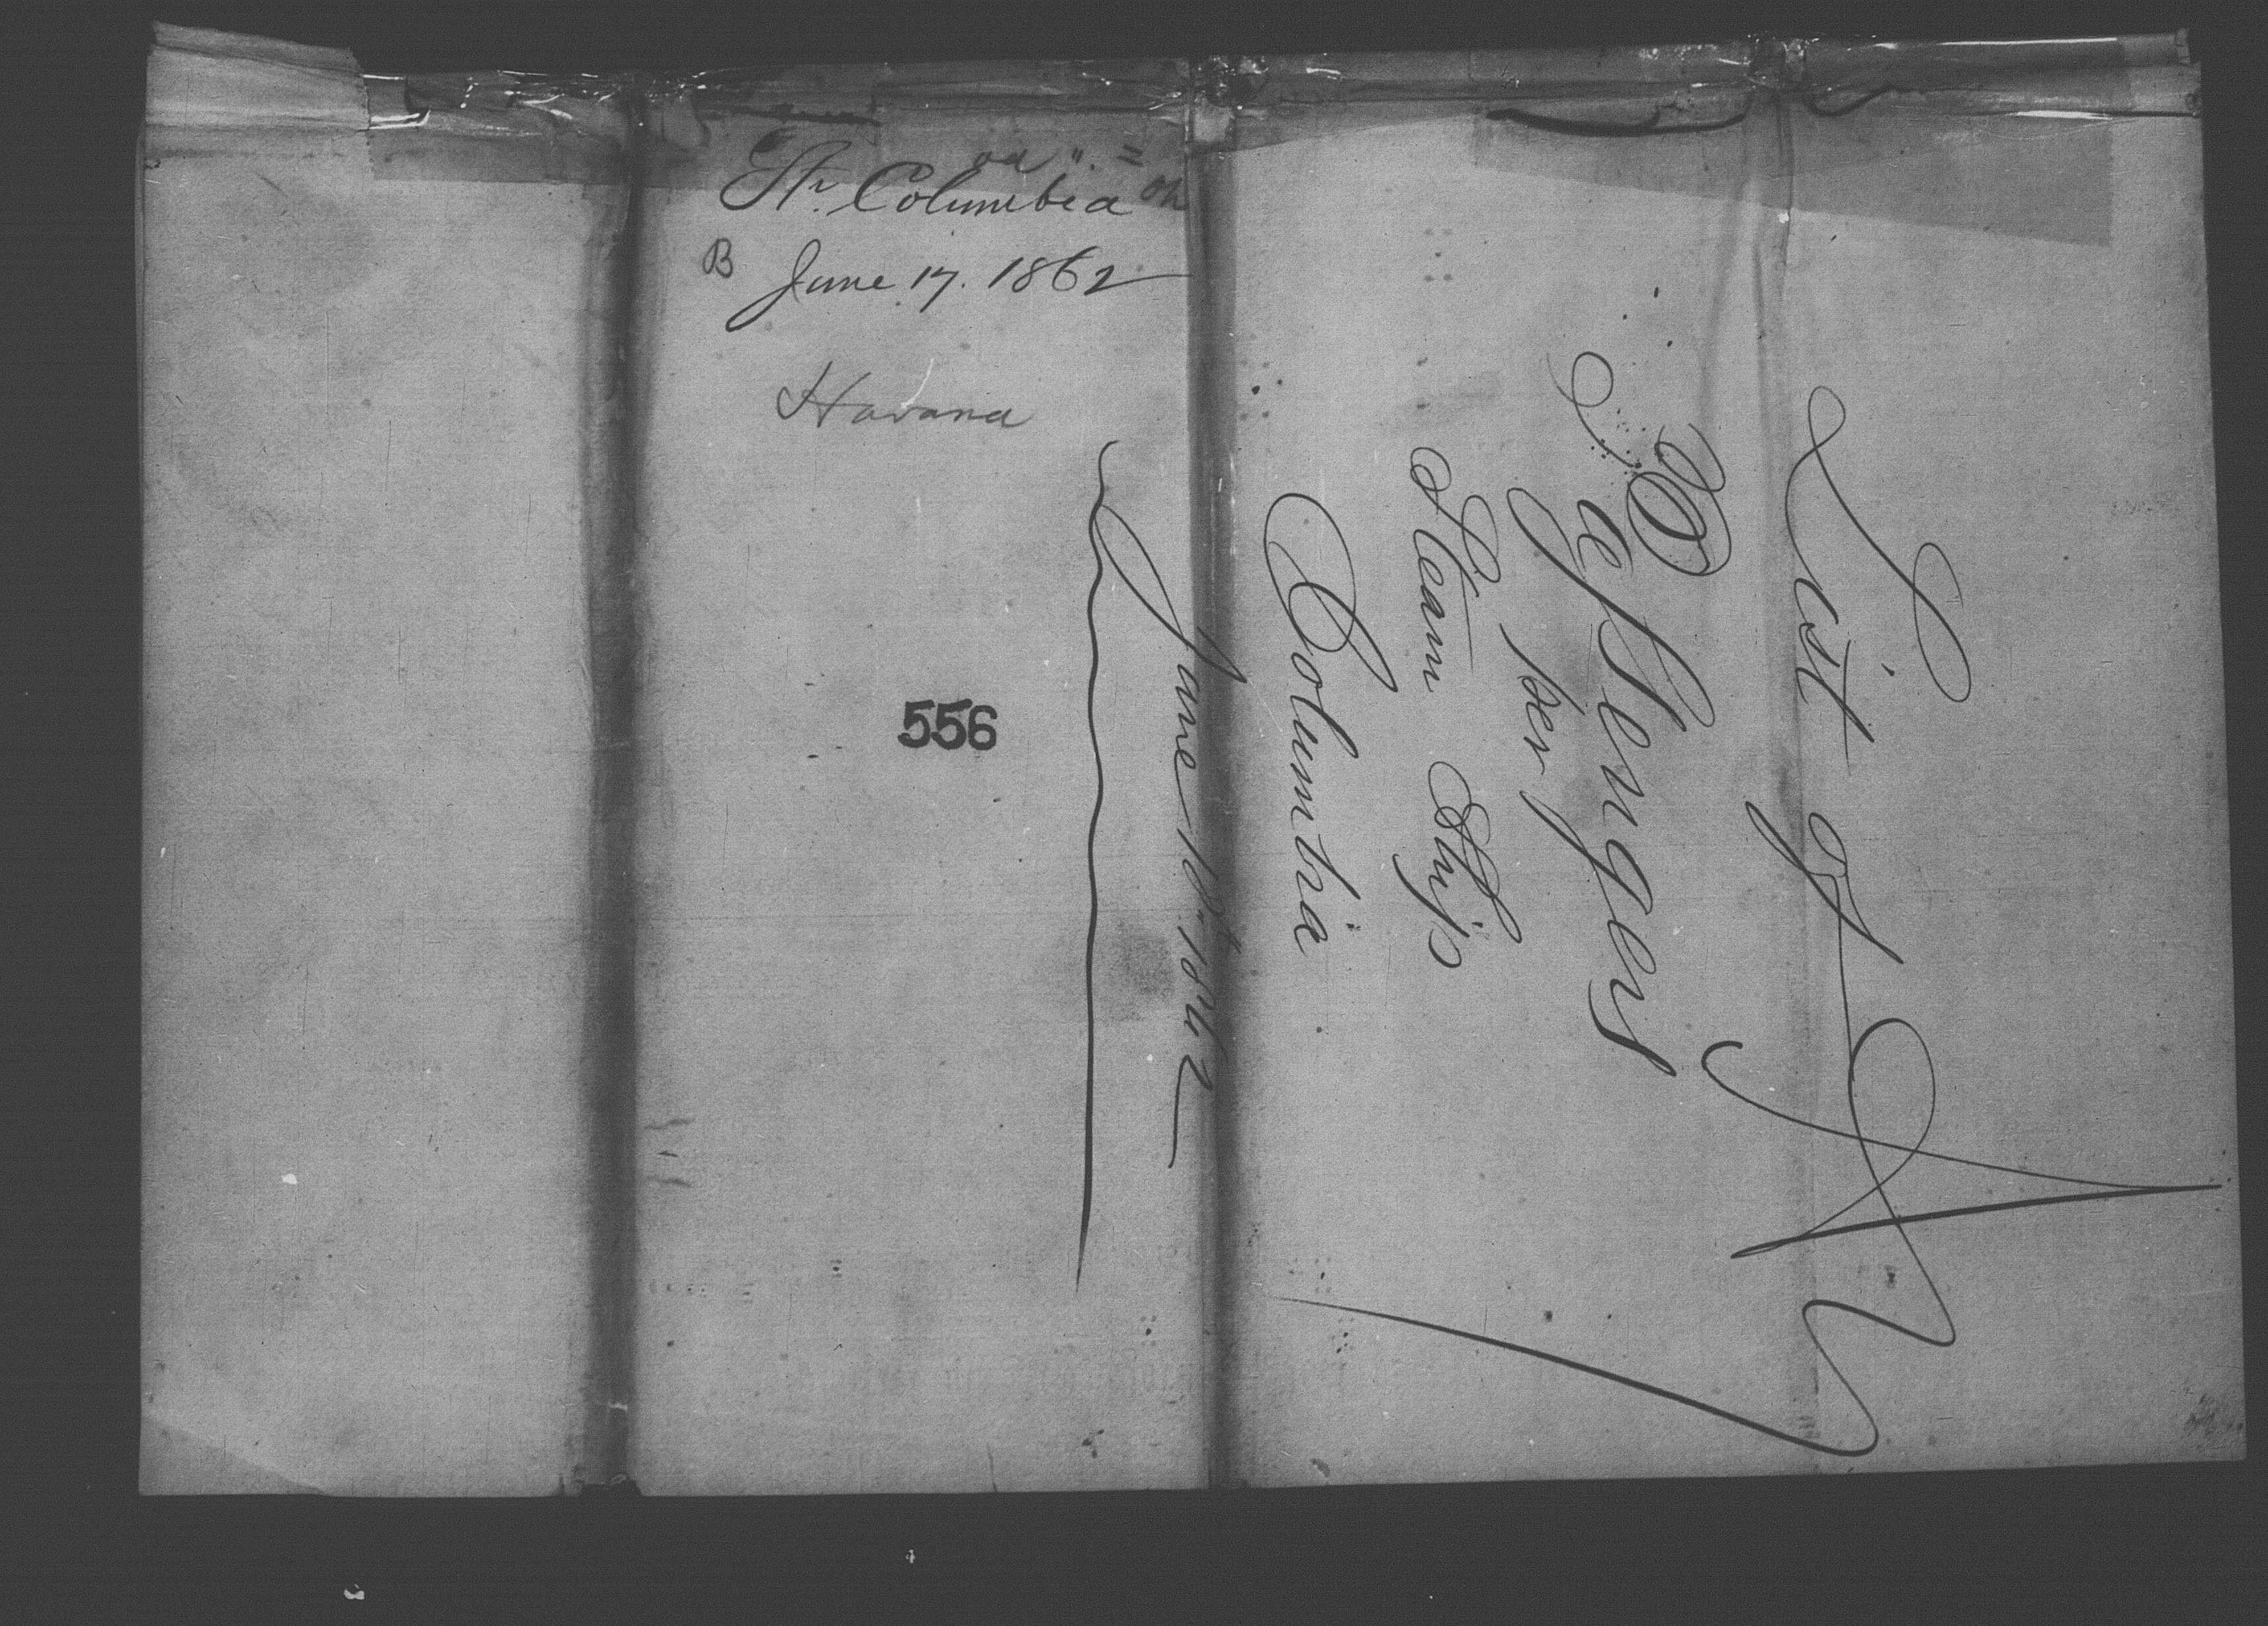 Str. Columbia
B June 17. 1862
Havana
556
List of
Passengers
per
Steam Ship
Columbia
June 1862